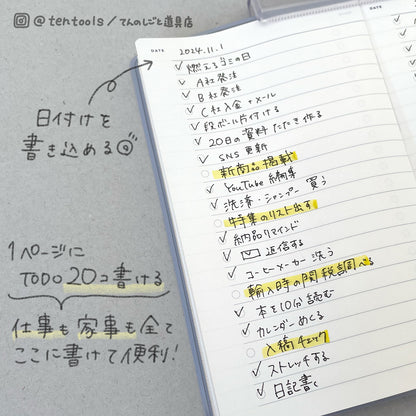 @tentools/てんのしごと道具店
日付けを
書き込める
1ページに
TODO 20コ書ける
仕事も家事も全て
ここに書けて便利!
DATE
2024.11.1
DATE
燃えるゴミの日
A社発注
B社発注
C社入金+メール
段ボール片付ける
20日の資料たたき作る
SNS更新
新商品掲載
YouTube編集
洗剤・シャンプー買う
特集のリスト出す
納品リマインド
返信する
コーヒーメーカー洗う
輸入時の関税調べる
本を10分読む
カレンダーめくる
入稿チェック
ストレッチする
日記書く